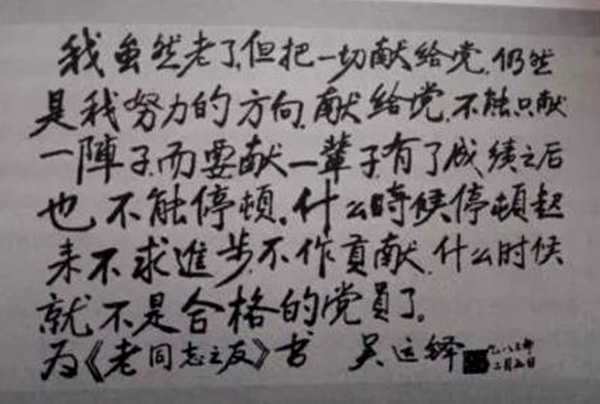 我虽然老了,但把一切献给党,仍然
是我努力的方向,献给党,不能只献
一陣子,而要献一輩子,有了成绩之后
也不能停頓。什么時候停頓起
来不求進步,不作貢献,什么时候
就不是合格的党員了。
为《老同志之友》书 吴运铎
一九八三年
二月五日